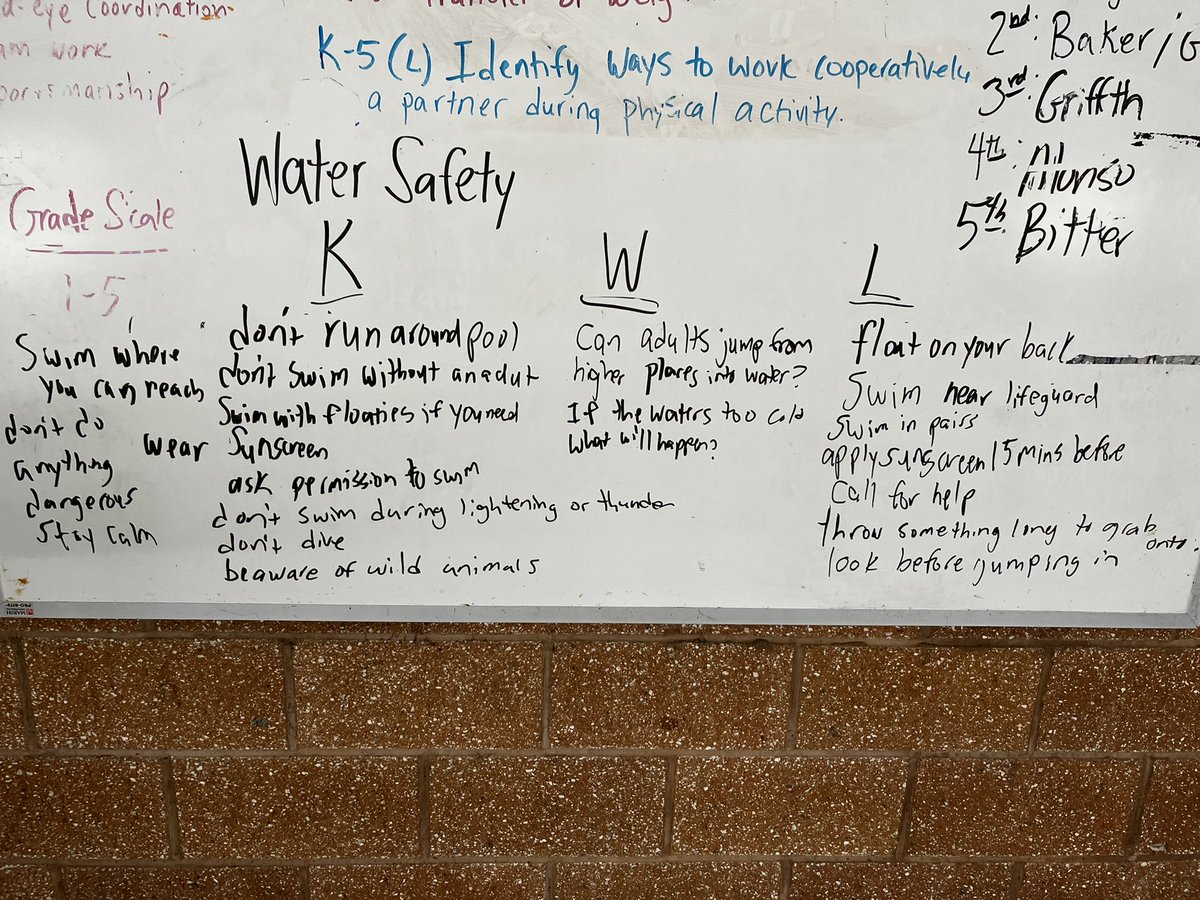 d-eye coordination
work
K-5 (L) Identify ways to work cooperatively
a partner during physical activity.
2nd: Baker/G
3rd: Griffth
4th: Alonso
5th: Bitter
Water Safety
Grade Scale
1-5
K
don't run around pool
don't swim without an adut
Swim with floaties if you need
wear Sunscreen
ask permission to swim
don't swim during lightening or thunder
don't dive
beaware of wild animals
Swim where
you can reach
don't do
anything
dangerous
stay calm
W
Can adults jump from
higher places into water?
If the waters too cold
what will happen?
L
float on your back
Swim near lifeguard
Swim in pairs
apply sunscreen 15 mins before
Call for help
throw something long to grab
onto.
look before jumping in